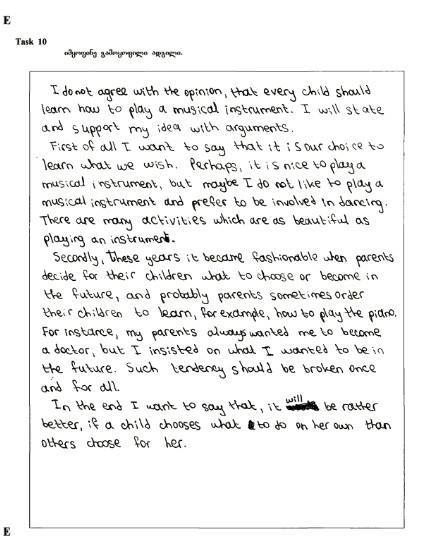 E
Task 10
იმყოფინე გამოყოფილი ადგილი.
I do not agree with the opinion, that every child should
learn how to play a musical instrument. I will state
and support my idea with arguments.
First of all I want to say that it is our choice to
learn what we wish. Perhaps, it is nice to play a
musical instrument, but maybe I do not like to play a
musical instrument and prefer to be involved in dancing.
There are many activities which are as beautiful as
playing an instrument.
Secondly, these years it became fashionable when parents
decide for their children what to choose or become in
the future, and probably parents sometimes order
their children to learn, for example, how to play the piano.
For instance, my parents always wanted me to become
a doctor, but I insisted on what I wanted to be in
the future. Such tendency should be broken once
and for all.
In the end I want to say that, it will be rather
better, if a child chooses what to do on her own than
others choose for her.
E